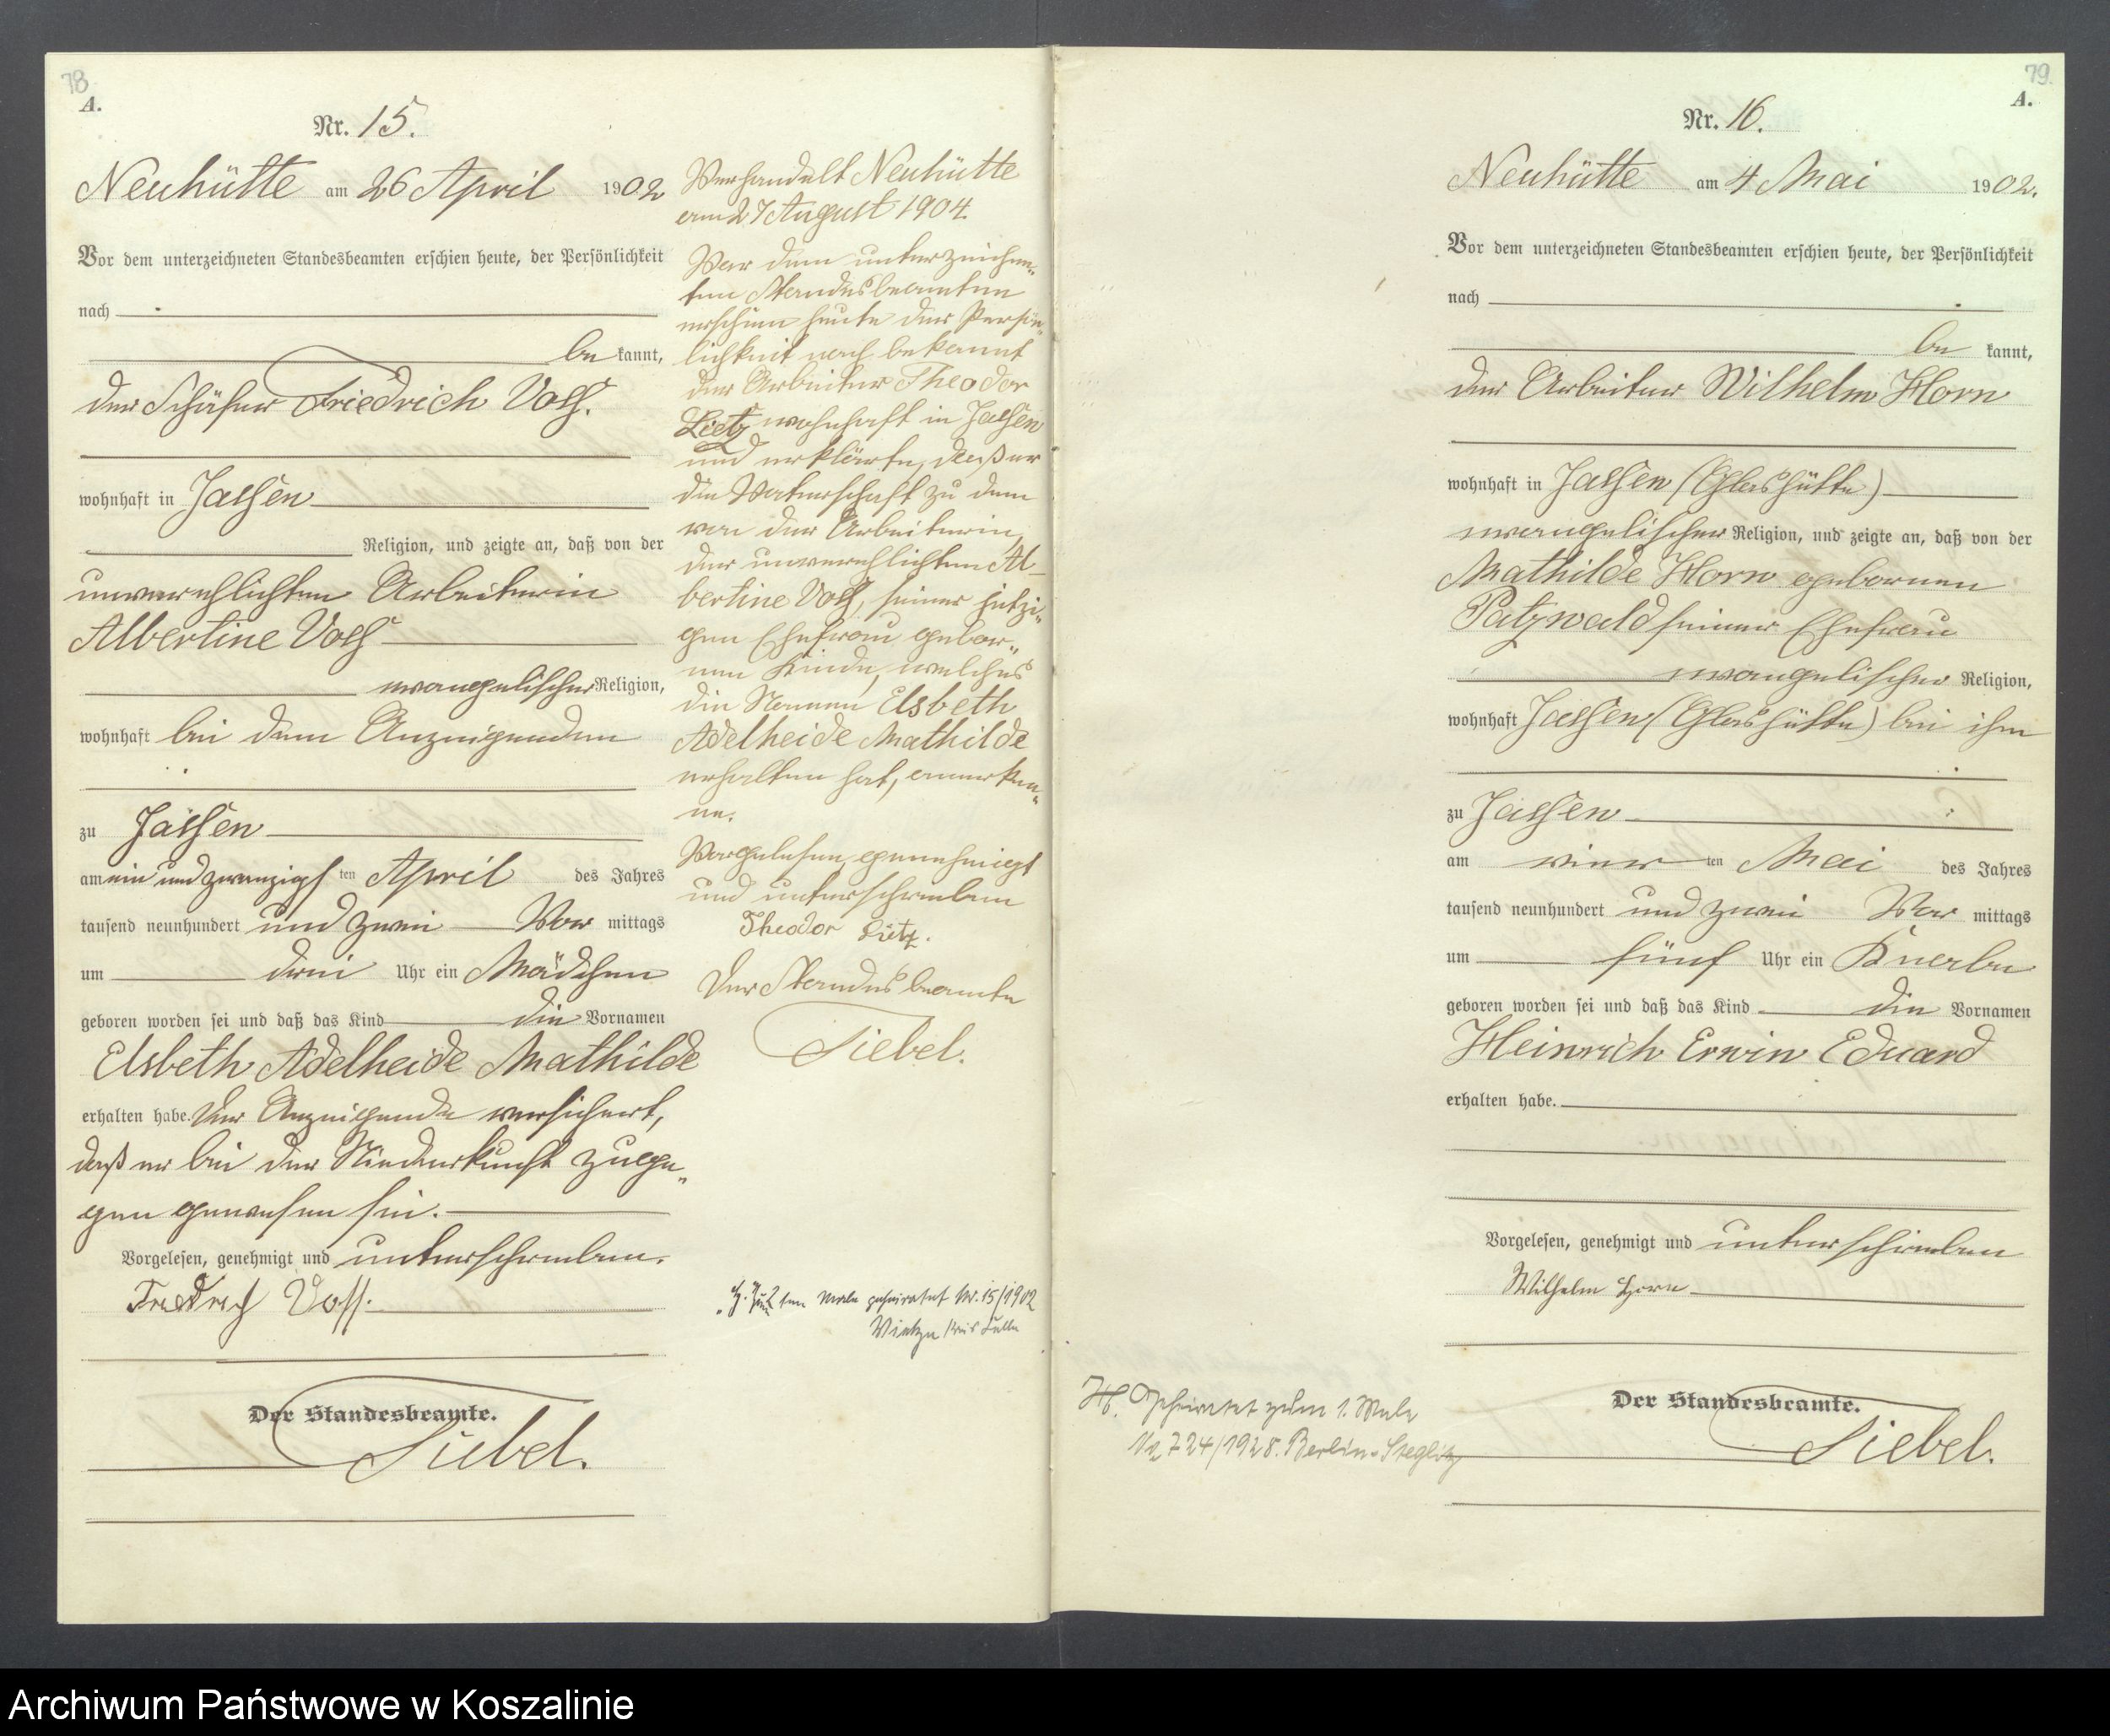 78
A.
Nr. 15.
Neuhütte am 26 April 1902
Vor dem unterzeichneten Standesbeamten erschien heute, der Persönlichkeit
nach
be kannt,
der Schäfer Friedrich Voß.
wohnhaft in Jassen
Religion, und zeigte an, daß von der
unverehlichten Arbeiterin
Albertine Voß
evangelischer Religion,
wohnhaft bei dem Anzeigenden
zu Jassen
am ein und zwanzigsten April des Jahres
tausend neunhundert und zwei Vor mittags
um drei Uhr ein Mädchen
geboren worden sei und daß das Kind die Vornamen
Elsbeth Adelheide Mathilde
erhalten habe. Der Anzeigende versichert,
daß er bei der Niederkunft zuge„
gen gewesen sei.
Vorgelesen, genehmigt und unterschrieben.
Friedrich Voss.
Der Standesbeamte.
Siebel.
Verhandelt Neuhütte
am 27 August 1904.
Vor dem unterzeichne„
ten Standesbeamten
erschien heute der Persön„
lichkeit nach bekannt
der Arbeiter Theodor
Lietz wohnhaft in Jassen
und erklärte, daß er
die Vaterschaft zu dem
von der Arbeiterin,
der unverehlichten Al-
bertine Voß, seiner jetzi„
gen Ehefrau gebor„
nen Kinde, welches
die Namen Elsbeth
Adelheide Mathilde
erhalten hat, anerken„
ne.
Vorgelesen, genehmigt
und unterschrieben
Theodor Lietz.
Der Standesbeamte
Siebel.
ten Male geheiratet Nr. 15/1902
79.
A.
Nr. 16.
Neuhütte am 4 Mai 1902.
Vor dem unterzeichneten Standesbeamten erschien heute, der Persönlichkeit
nach
be kannt,
der Arbeiter Wilhelm Horn
wohnhaft in Jassen (Glashütte)
evangelischer Religion, und zeigte an, daß von der
Mathilde Horn gebornen
Patzwald seiner Ehefrau
evangelischer Religion,
wohnhaft Jassen (Glashütte) bei ihm
zu Jassen
am vier ten Mai des Jahres
tausend neunhundert und zwei Vor mittags
um fünf Uhr ein Knabe
geboren worden sei und daß das Kind die Vornamen
Heinrich Erwin Eduard
erhalten habe.
Vorgelesen, genehmigt und unterschrieben
Wilhelm Horn
Der Standesbeamte.
Siebel.
Geheiratet zum 1. Male
724/1928. Berlin-Steglitz
Archiwum Państwowe w Koszalinie